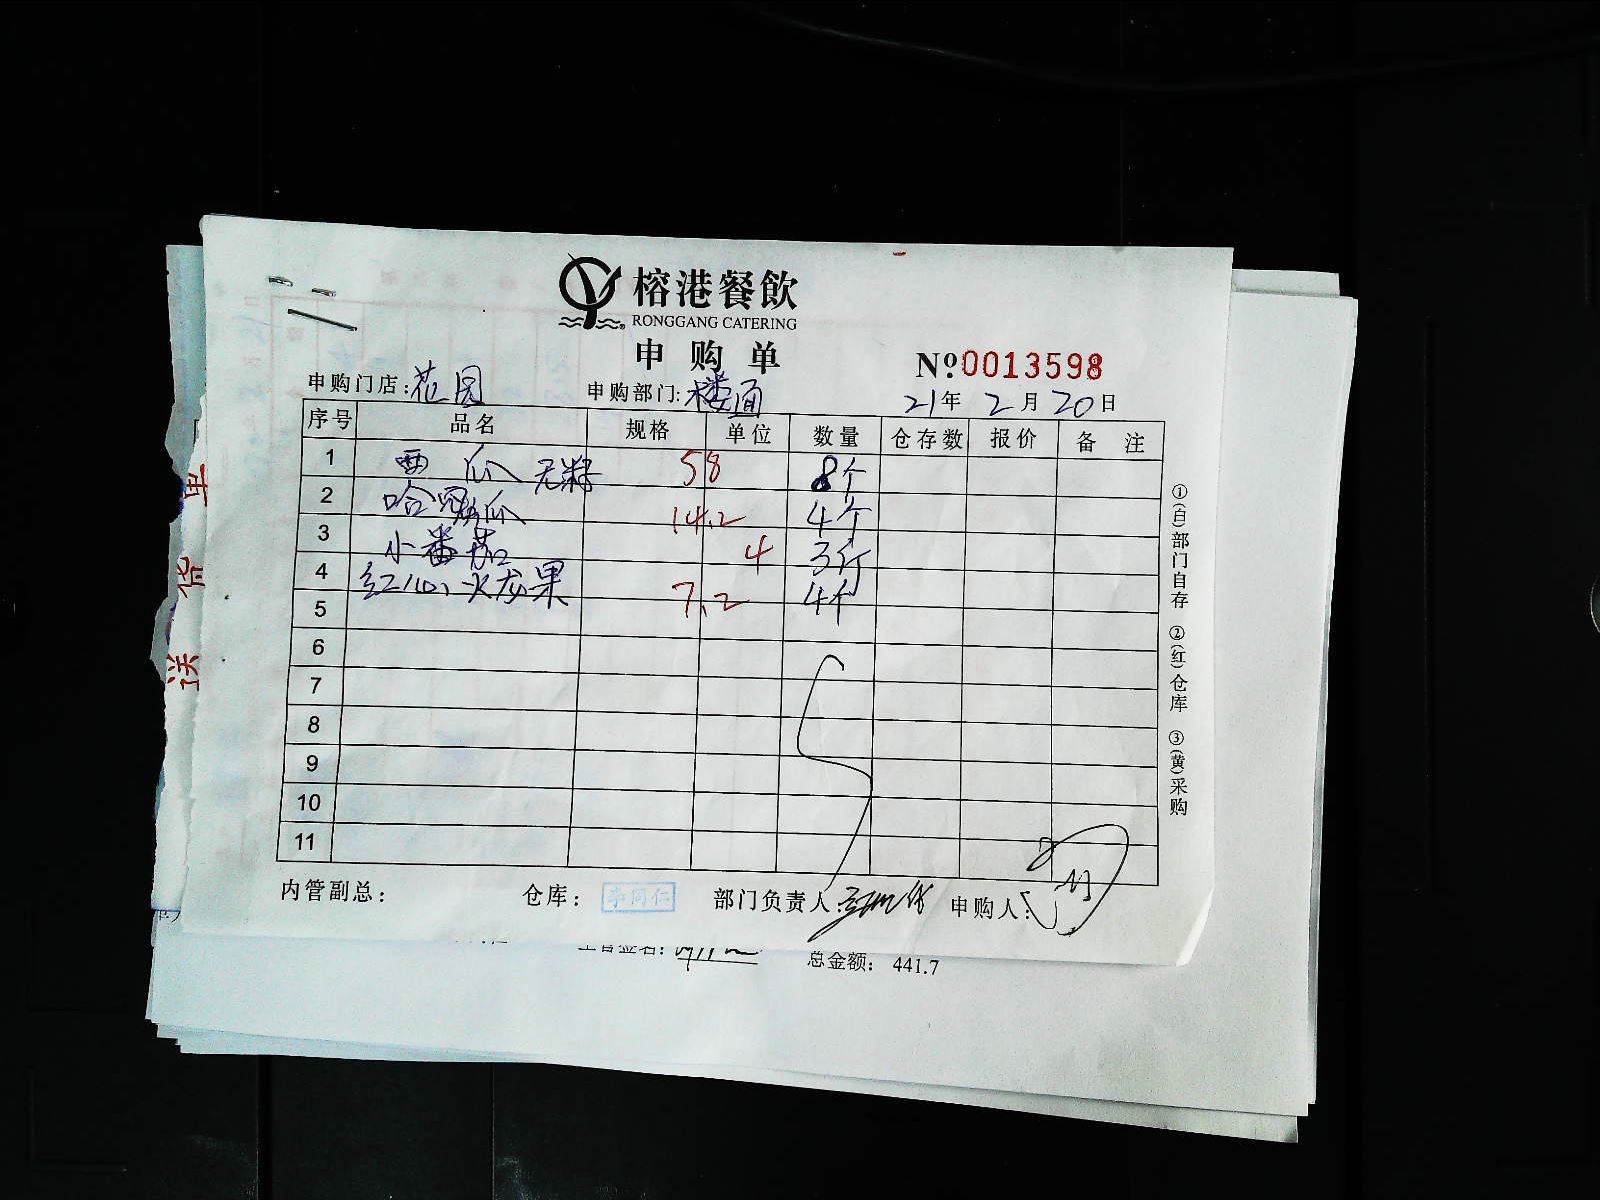 榕港餐飲
RONGGANG CATERING
申购单
№0013598
申购门店:花园 申购部门:楼面 21年2月20日
序号 品名 规格 单位 数量 仓存数 报价 备注
1 西瓜 无籽 58 8个
2 哈密瓜 14.2 4个
3 小番茄 4 3斤
4 红心火龙果 7.2 4个
5
6
7
8
9
10
11
①(白)部门自存 ②(红)仓库 ③(黄)采购
内管副总: 仓库: 李同仁 部门负责人: 申购人:
总金额: 441.7
送货单